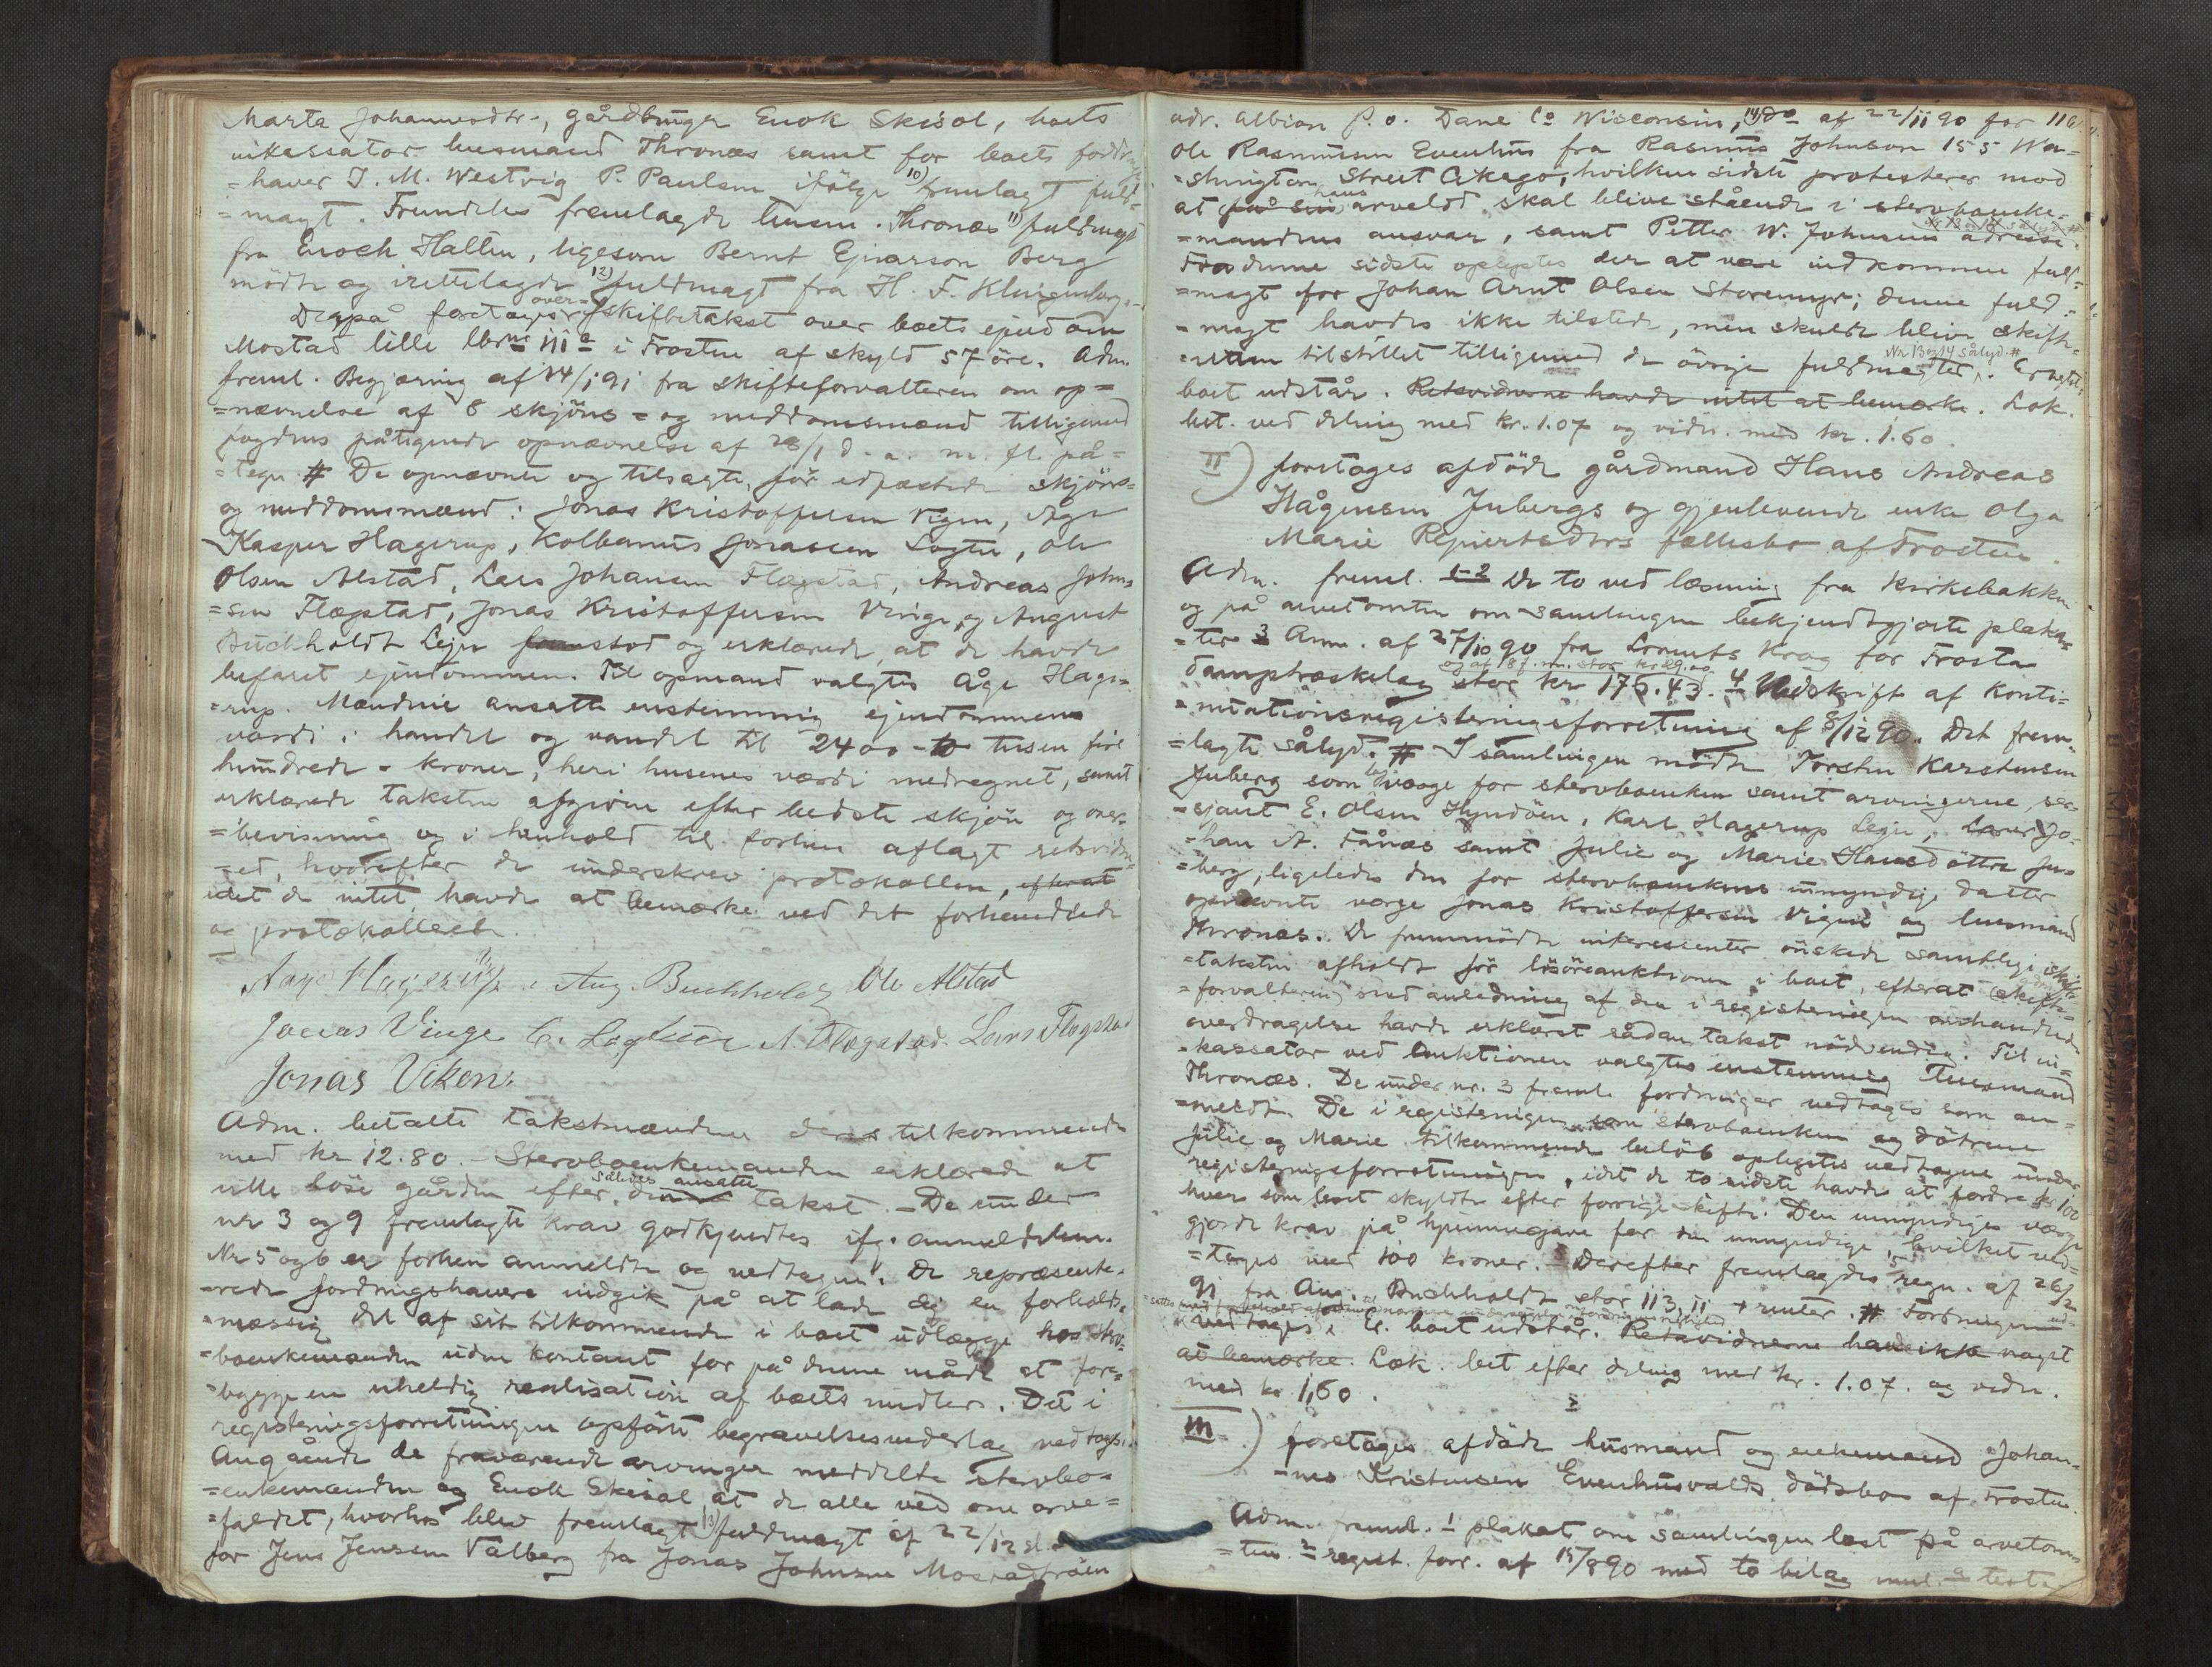 Marta Johannesdtr., gårdbruger Enok Skisol, boets
inkassator husmand Thronæs samt for boets fordrings
=haver I. M. Westvig P. Paulsen ifölge 10) fremlagt fuld=
=magt. Fremdeles fremlagde husm. Thronæs 11) fuldmagt
fra Enoch Hallen, ligesom Bernt Ejnarson Berg
mödte og irettelagde 12) fuldmagt fra H. F. Klingenberg.
Derpå foretoges over=skiftetakst over boets ejendom
Mostad lille lbrne 111 a i Frosten af skyld 57 öre. Adm.
freml. Begjæring af 14/1 91 fra skifteforvalteren om op=
=nævnelse af 8 skjöns= og meddomsmænd tilligemed
fogdens påtegnede opnævnelse af 28/1 d. a. m. fl. på=
=tegn. # De opnævnte og tilsagte, för edfæstede skjöns=
og meddomsmænd: Jonas Kristoffersen Vigen, Åge
Kasper Hagerup, Kolbanus Jonassen Logtu, Ole
Olsen Alstad, Lars Johansen Flægstad, Andreas John=
=sen Flægstad, Jonas Kristoffersen Vinge og August
Buchholdt Lejn fremstod og erklærede, at de havde
befaret ejendommen. Til opmand valgtes Åge Hage=
=rup. Mændene ansatte enstemmig ejendommens
værdi i handel og vandel til 2400 - to tusen fire
hundrede - kroner, heri husenes værdi medregnet, samt
erklærede taksten afgiven efter bedste skjön og over=
=bevisning og i henhold til forhen aflagt retsvidne=
=ed, hvorefter de underskrev protokollen, efterat
idet de intet havde at bemærke ved det forhandlede
og protokollerede.
Aage Hagerup Aug. Buchholdt Ole Alstad
Jonas Vinge C. Logtu A. Flægstad. Lars Flægstad
Jonas Viken.
Adm. betalte takstmændene deres tilkommende
med kr 12.80. - Stervboenkemanden erklærede at
ville löse gården efter den således ansatte takst. - De under
nr 3 og 9 fremlagte krav godkjendtes ifg. anmeldelsen.
Nr 5 og 6 er forhen anmeldte og vedtagne. De repræsente=
=rede fordringshavere indgik på at lade sig en forholds=
=mæssig del af sit tilkommende i boet udlægge hos sterv=
=boenkemanden uden kontant for på denne måde at fore=
=bygge en uheldig realisation af boets midler. Det i
registeringsforretningen opförte begravelsesvederlag vedtoges.
Angående de fraværende arvinger meddelte stervbo=
=enkemanden og Enok Skisol, at de alle ved om arve=
=faldet, hvorhos blev fremlagt 13) fuldmagt af 22/12 sl.
for Jens Jensen Valberg fra Jonas Johnsen
adr. Albion P.o. Dane Co Wisconsin, 14) do af 22/11 90 for
Ole Rasmussen Evenhus fra Rasmus Johnson 155 Wa=
=shington Street Cikago, hvilken sidste protesterer mod
at på sin hans arvelod skal blive stående i stervboenke=
=mandens ansvar, samt Petter W. Johnsens adresse.
Fra denne sidste oplystes der at være indkommen fuld=
=magt for Johan Arnt Olsen Storemyr; denne fuld=
=magt havdes ikke tilstede, men skulde blive skift=
=retten tilstillet tilligemed de övrige fuldmagter. Nr 13 og 14 sålyd. #
boet udstår. Retsvidnerne havde intet at bemærke. Lok.
bet. ved deling med kr. 1.07 og vidn. med kr. 1.60.
II) foretoges afdöde gårdmand Hans Andreas
Hågensen Jubergs og gjenlevende enke Olga
Marie Repiertsdtrs fællesbo af Frosten
Adm. freml. 1-2 De to ved læsning fra Kirkebakken
og på arvetomten om samlingen bekjendtgjorte plaka=
=ter 3 Anm. af 27/10 90 fra Lorents Krog for Frosta
og af 18 f. m. stor kr 29.00
damptræskelag stor kr 175.43. 4 Udskrift af konti=
=nuationsregisteringsforretning af 8/12 90. Det frem=
=lagte sålyd. # I samlingen mödte Torsten Karstensen
Juberg som lagværge for stervboenken samt arvingerne, ser=
=sjant E. Olsen Hyndöen, Karl Hagerup Lejn, Jo=
=han A. Fånæs samt Julie og Marie Hansdöttre Ju=
=berg, ligeledes den for stervboenkens umyndige datter
opnævnte værge Jonas Kristoffersen Vigen og husmand
Thronæs. De fremmödte interessenter önskede samtlige skifte=
=taksten afholdt för lösöreauktionen i boet, efterat skifte=
=forvalteren med anledning af den i registeringen omhandlede
overdragelse havde erklæret sådan takst nödvendig. Til in=
=kassator ved auktionen valgtes enstemmig husmand
Thronæs. De under nr. 3 freml. fordringer vedtoges som an=
=meldt. De i registeringen som stervboenken og döttrene
Julie og Marie tilkommende belöb oplystes vedtagne under
registeringsforretningen, idet de to sidste havde at fordre kr 100
hver som bort skyldtes efter forrige skifte. Den umyndiges værge
gjorde krav på hjemmegave for den umyndige, hvilket ved=
=toges med 100 kroner. Derefter fremlagdes 5 regn. af 26/2
91 fra Aug. Buchholdt stor 113,11 + renter. # Fordringen
vedtoges. Er. boet udstår. Retsvidnerne havde ikke noget
at bemærke. Lok. bet efter deling med kr. 1.07. og vidn.
med kr 1,60.
III) foretoges afdöde husmand og enkemand Johan=
=nes Kristensen Evenhusvalds dödsbo af Frosten.
Adm. freml. 1 plakat om samlingen læst på arvetom=
=ten. 2 regist. forr. af 15/8 90 med to bilag